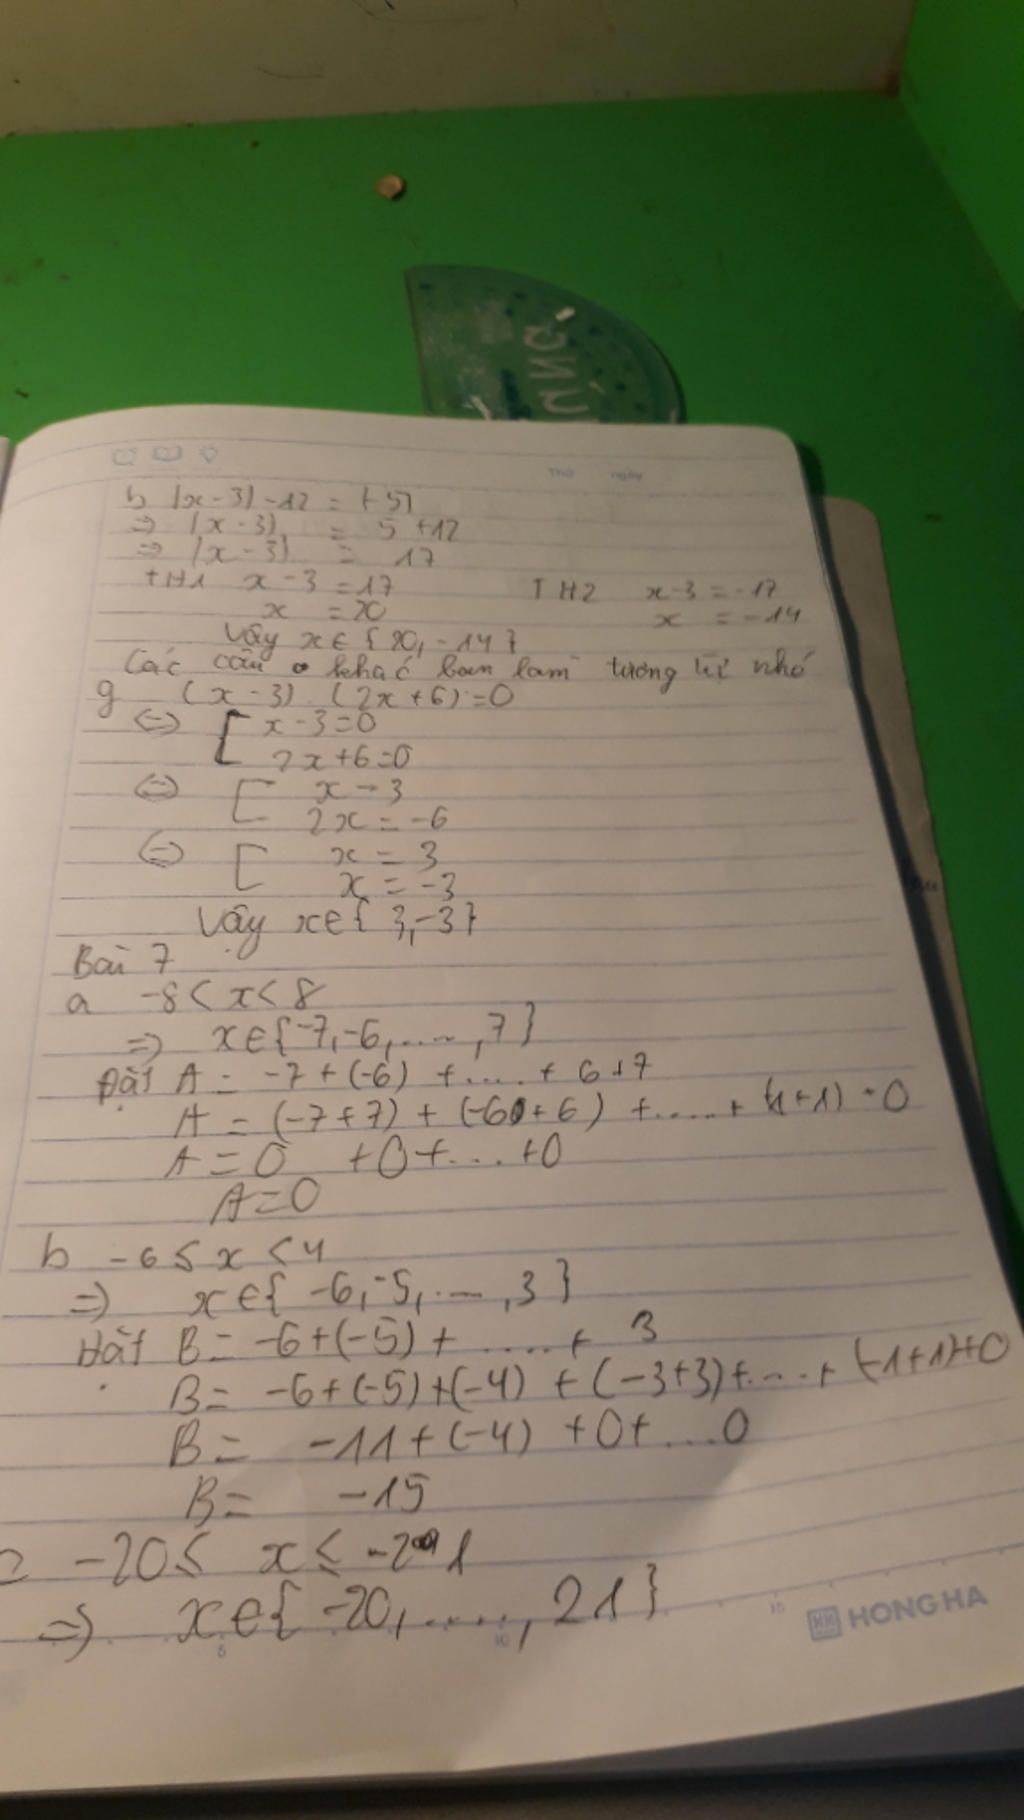 Thứ ngày
b |x-3|-12 = |-5|
=> |x-3| = 5+12
=> |x-3| = 17
TH1 x-3=17 TH2 x-3=-17
x =20 x =-14
Vậy x∈{20,-14}
Các câu khác bạn làm tương tự nhé
g (x-3).(2x+6)=0
<=> [ x-3=0
2x+6=0
<=> [ x=3
2x=-6
<=> [ x=3
x=-3
Vậy x∈{3,-3}
Bài 7
a -8<x<8
=> x∈{-7,-6,....,7}
Đặt A= -7+(-6)+....+6+7
A=(-7+7)+(-6+6)+.....+(-1+1)+0
A=0+0+...+0
A=0
b -6≤x<4
=> x∈{-6,-5,...,3}
Đặt B= -6+(-5)+.....+3
B= -6+(-5)+(-4)+(-3+3)+....+(-1+1)+0
B= -11+(-4)+0+...0
B= -15
-20≤ x≤ -21
=> x∈{-20,....,21}
5 10 15
HONG HA